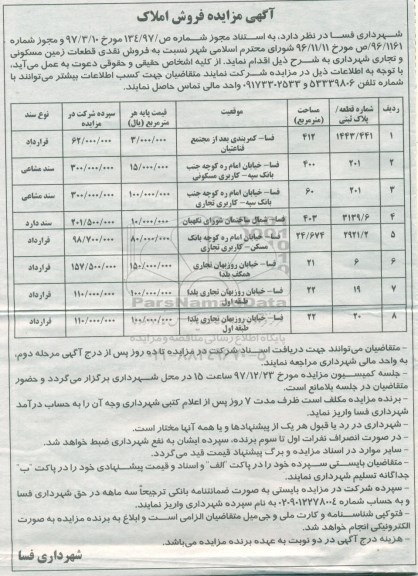 آگهی مزایده فروش املاک
شهرداری فسا در نظر دارد، به استناد مجوز شماره ص/۱۳۴/۹۷ مورخ ۹۷/۳/۱۰ و مجوز شماره
۹۶/۱۱۶۱/ص مورخ ۹۶/۱۱/۱۱ شورای محترم اسلامی شهر نسبت به فروش نقدی قطعات زمین مسکونی
و تجاری شهرداری به شرح ذیل اقدام نماید. از کلیه اشخاص حقیقی و حقوقی دعوت به عمل می‌آید،
با توجه به اطلاعات ذیل در مزایده شرکت نمایند متقاضیان جهت کسب اطلاعات بیشتر می‌توانند با
شماره تلفن ۵۳۳۳۹۸۰۶ و ۰۹۱۷۳۳۰۲۵۳۳ واحد مالی تماس حاصل نمایند.
ردیف | شماره قطعه/ پلاک ثبتی | مساحت (مترمربع) | موقعیت | قیمت پایه هر مترمربع (ریال) | سپرده شرکت در مزایده | نوع سند
۱ | ۱۴۴۳/۴۴۱ | ۴۱۲ | فسا- کمربندی بعد از مجتمع قناعتیان | ۳/۰۰۰/۰۰۰ | ۶۲/۰۰۰/۰۰۰ | قرارداد
۲ | ۲۰۱ | ۴۰۰ | فسا- خیابان امام ره کوچه جنب بانک سپه- کاربری مسکونی | ۱۵/۰۰۰/۰۰۰ | ۳۰۰/۰۰۰/۰۰۰ | سند مشاعی
۳ | ۲۰۱ | ۶۰ | فسا- خیابان امام ره کوچه جنب بانک سپه- کاربری تجاری | ۱۰۰/۰۰۰/۰۰۰ | ۳۰۰/۰۰۰/۰۰۰ | سند مشاعی
۴ | ۳۱۳۹/۶ | ۴۰۳ | فسا- شمال ساختمان شورای نگهبان | ۱۰/۰۰۰/۰۰۰ | ۲۰۱/۵۰۰/۰۰۰ | سند دارد
۵ | ۲۹۲۱/۲ | ۲۴/۶۷۴ | فسا- خیابان امام ره کوچه بانک مسکن- کاربری تجاری | ۸۰/۰۰۰/۰۰۰ | ۹۸/۷۰۰/۰۰۰ | قرارداد
۶ | ۶ | ۲۱ | فسا- خیابان روزبهان تجاری همکف یلدا | ۱۵۰/۰۰۰/۰۰۰ | ۱۵۷/۵۰۰/۰۰۰ | قرارداد
۷ | ۱۹ | ۲۲ | فسا- خیابان روزبهان تجاری یلدا طبقه اول | ۱۰۰/۰۰۰/۰۰۰ | ۱۱۰/۰۰۰/۰۰۰ | قرارداد
۸ | ۲۰ | ۲۲ | فسا- خیابان روزبهان تجاری یلدا طبقه اول | ۱۰۰/۰۰۰/۰۰۰ | ۱۱۰/۰۰۰/۰۰۰ | قرارداد
- متقاضیان می‌توانند جهت دریافت اسناد شرکت در مزایده تا ده روز پس از درج آگهی مرحله دوم،
به واحد مالی شهرداری مراجعه نمایند.
- جلسه کمیسیون مزایده مورخ ۹۷/۱۲/۲۳ ساعت ۱۵ در محل شهرداری برگزار می‌گردد و حضور
متقاضیان در جلسه بلامانع است.
- برنده مزایده مکلف است ظرف مدت ۷ روز پس از اعلام کتبی شهرداری وجه آن را به حساب درآمد
شهرداری فسا واریز نماید.
- شهرداری در رد یا قبول هر یک از پیشنهادها و یا همه آنها مختار است.
- در صورت انصراف نفرات اول تا سوم برنده، سپرده ایشان به نفع شهرداری ضبط خواهد شد.
- سایر موارد در اسناد مزایده و برگ پیشنهاد قیمت قید می‌گردد.
- متقاضیان بایستی سپرده خود را در پاکت "الف" و اسناد و قیمت پیشنهادی خود را در پاکت "ب"
جداگانه تسلیم شهرداری نمایند.
- سپرده شرکت در مزایده بایستی به صورت ضمانتنامه بانکی ترجیحاً سه ماهه در حق شهرداری فسا
و به حساب شماره ۰۲۰۹۰۱۲۲۷۸۰۰۴ به نام سپرده شهرداری واریز نمایند.
- فتوکپی شناسنامه و کارت ملی و جی‌میل متقاضیان الزامی است و ابلاغ به برنده مزایده به صورت
الکترونیکی انجام خواهد شد.
- هزینه درج آگهی در دو نوبت به عهده برنده مزایده می‌باشد.
شهرداری فسا